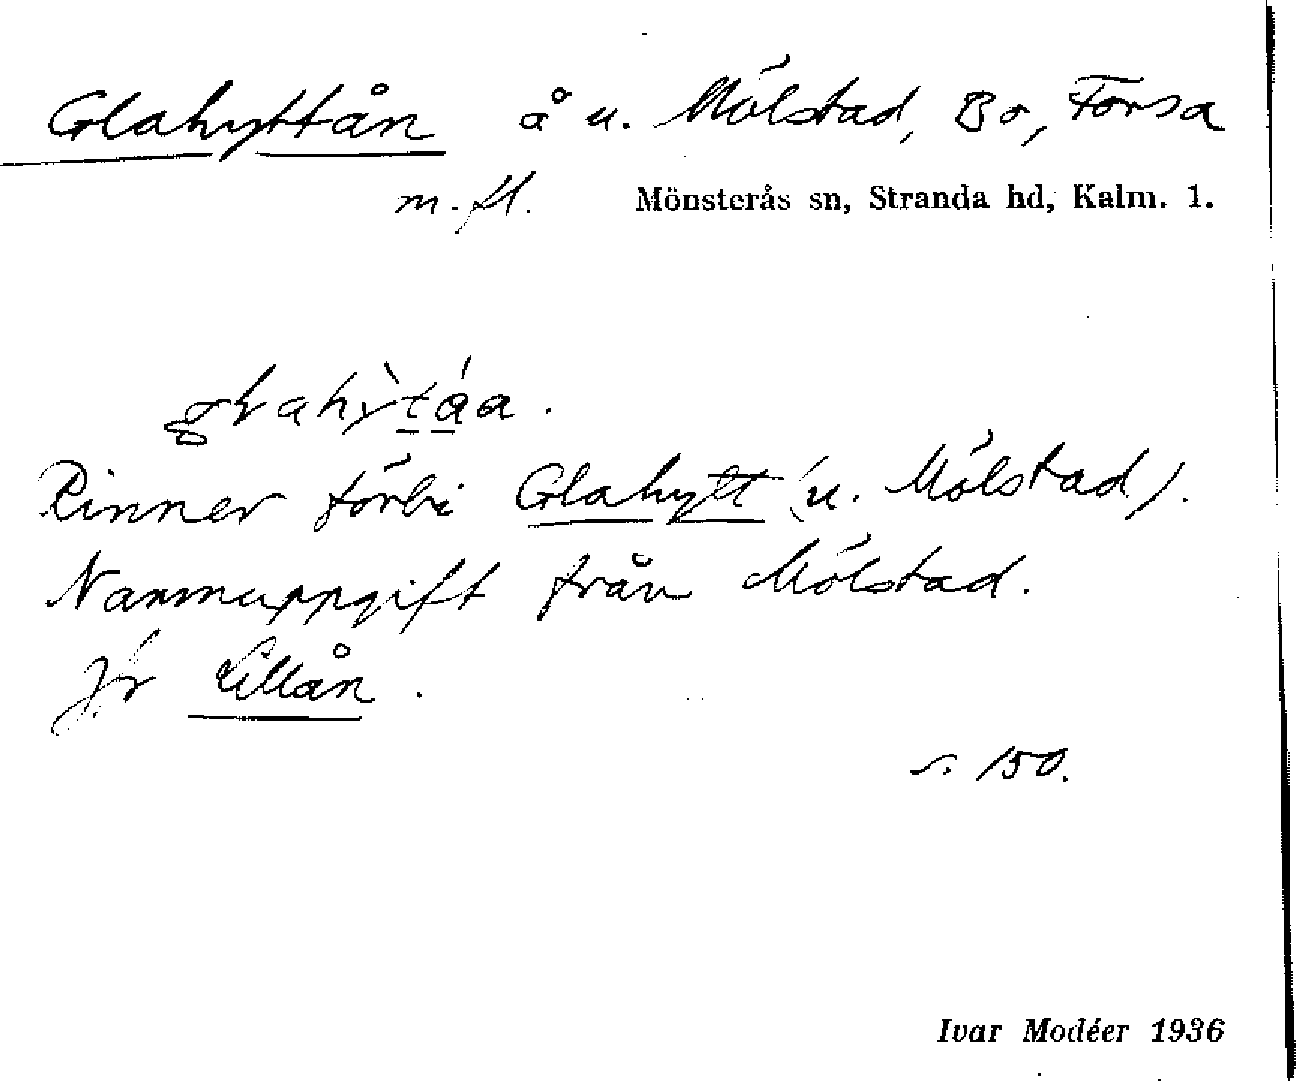 Glahyttån å u. Mölstad, Bo, Forsa
m. fl. Mönsterås sn, Stranda hd, Kalm. l.
Rinner förbi Glahytt (u. Mölstad).
Namnuppgift från Mölstad.
Jfr Lillån.
s. 150.
Ivar Modéer 1936